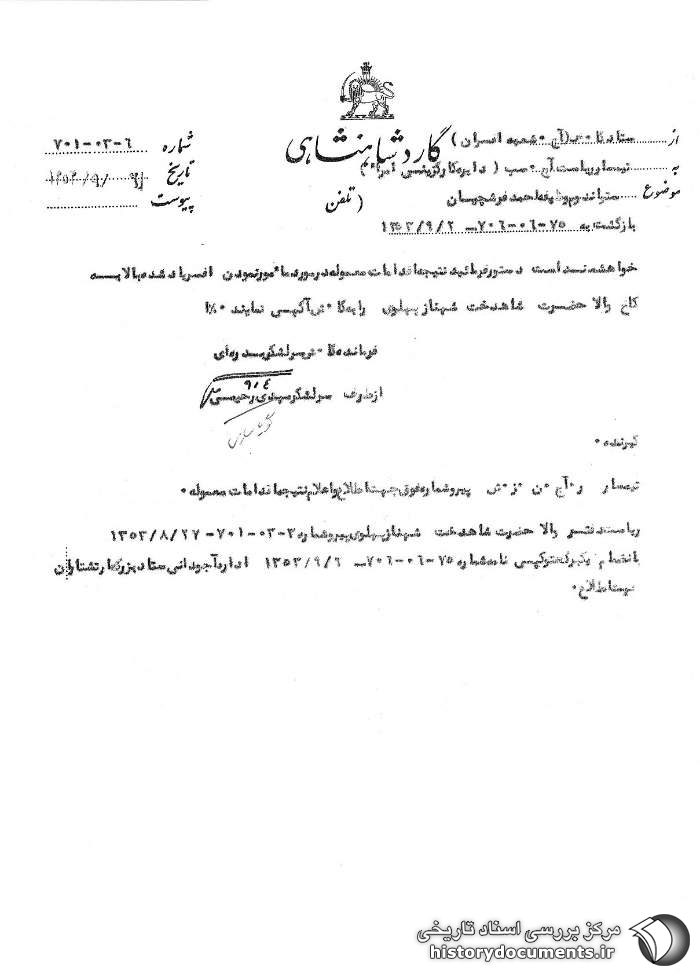 گارد شاهنشاهی
از ستاد گا - ش (آج - شعبه افسران)
به تیمسار ریاست آج - سب (دایره کارگزینی امراء)
موضوع ستواندوم وظیفه احمد
(تلفن
شماره ۷۰۱-۰۳-۶
تاریخ
پیوست
بازگشت به ۷۵-۰۶-۷۰۶ - ۱۳۵۳/۹/۲
خواهشمند است دستور فرمائید نتیجه اقدامات معموله در مورد مأمور نمودن افسر یاد شده بالا به
کاخ والا حضرت شاهدخت شهناز پهلوی را به گا - ش آگهی نمایند
فرمانده گا - ش سرلشکر بدره‌ای
از طرف سرلشکر مهدی رحیمی
گیرنده -
تیمسار ر - آج - ن - ز - ش پیرو شماره فوق جهت اطلاع و اعلام نتیجه اقدامات معموله -
ریاست دفتر والا حضرت شاهدخت شهناز پهلوی پیرو شماره ۲-۰۳-۷۰۱ - ۱۳۵۳/۸/۲۷
بانضمام یکبرگ فتوکپی نامه شماره ۷۵-۰۶-۷۰۶ - ۱۳۵۳/۹/۶ اداره آجودانی ستاد بزرگ ارتشتاران
جهت اطلاع -
مرکز بررسی اسناد تاریخی
historydocuments.ir